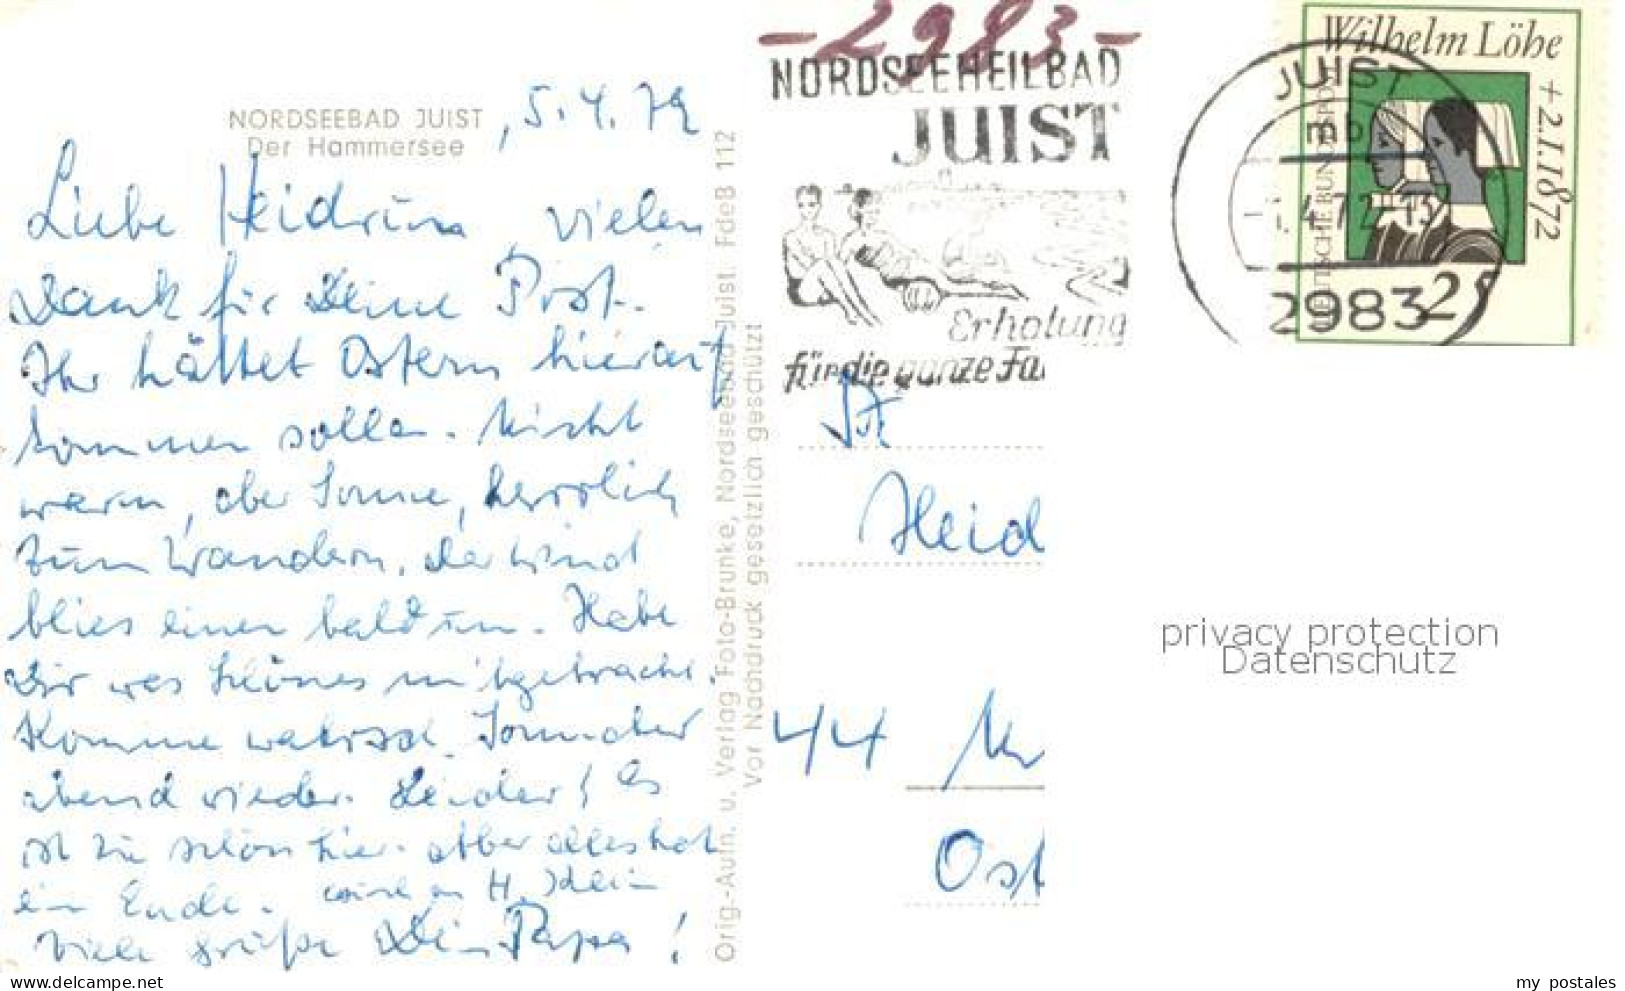 -2983-
NORDSEEHEILBAD
JUIST
Erholung
für die ganze Fa
Wilhelm Löhe
+2.1.1872
DEUTSCHE BUNDESPOST
25
JUIST
mb
4.72-13
2983
NORDSEEBAD JUIST
Der Hammersee
, 5.4.72
Liebe Heidrun, vielen
Dank für Deine Post.
Ihr hättet Ostern hierauf
kommen sollen. Nicht
warm, aber Sonne, herrlich
zum Wandern, der Wind
blies einen bald um. Habe
Dir was Schönes mitgebracht.
Komme wahrsch. Sonn
abend wieder. Leider! Es
ist zu schön hier. Aber alles hat
ein Ende.
Viele Grüße Dein Papa!
Orig.-Aufn. u. Verlag Foto-Brunke, Nordseebad Juist. FdeB 112
Vor Nachdruck gesetzlich geschützt
Heid
44 M
Ost
privacy protection
Datenschutz
www.delcampe.net
my_postales